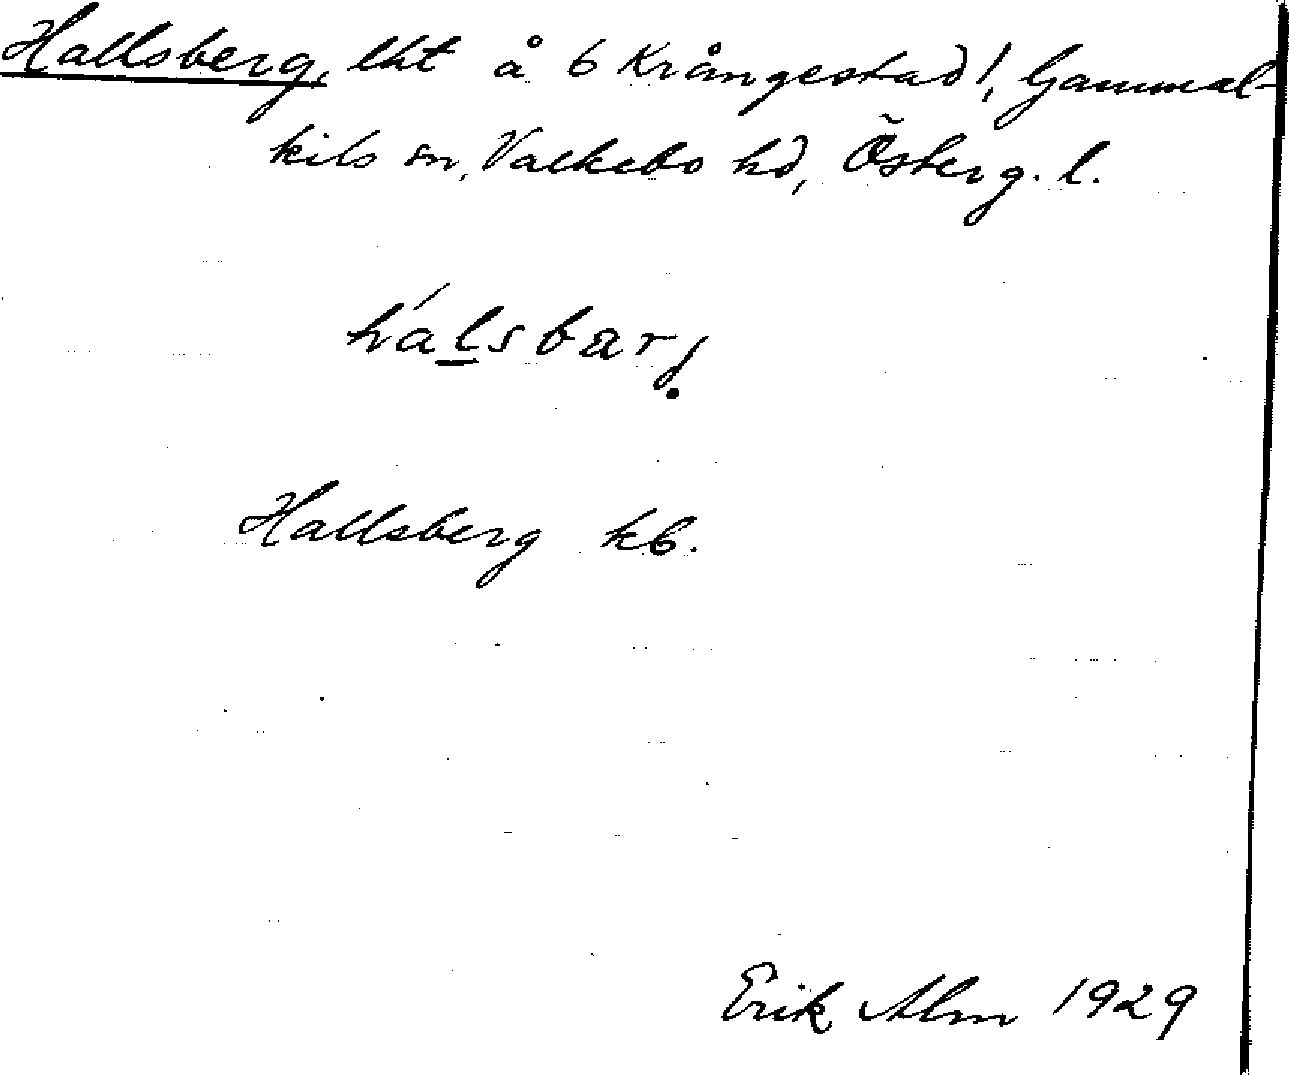 Hallsberg, lht å 6 Krångestad!, Gammal-
kils sn, Valkebo hd, Österg. l.
hálsbarj.
Hallsberg kb.
Erik Alm 1929